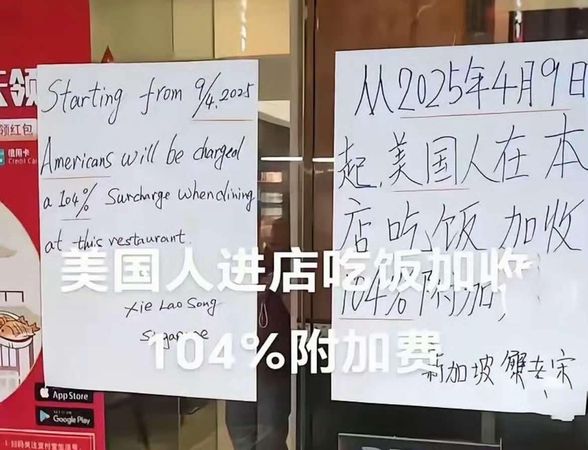 Starting from 9/4.2025
Americans will be charged
a 104% Surcharge when dining
at this restaurant.
Xie Lao Song
从2025年4月9日
起,美国人在本
店吃饭加收
104%附加
新加坡 蟹老宋
美国人进店吃饭加收
104%附加费
领红包
信用卡
Credit Car
App Store
Google Play